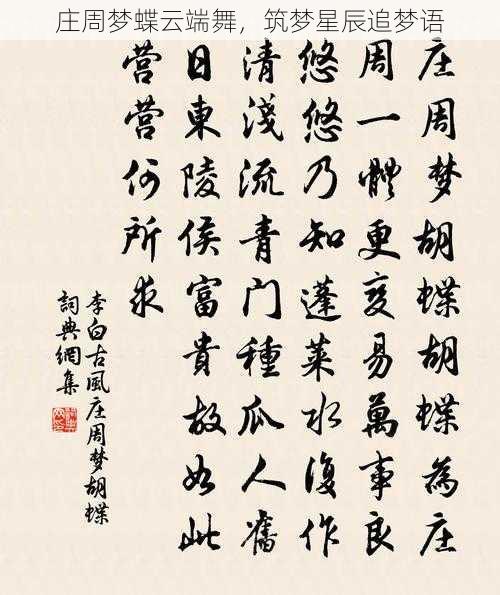 庄周梦蝶云端舞，筑梦星辰追梦语
庄周梦胡蝶胡蝶為庄
周一體更变易萬事良
悠悠乃知蓬莱水復作
清淺流青门種瓜人舊
日東陵侯富貴故如此
营营何所求
李白古風庄周梦胡蝶
詞典網集